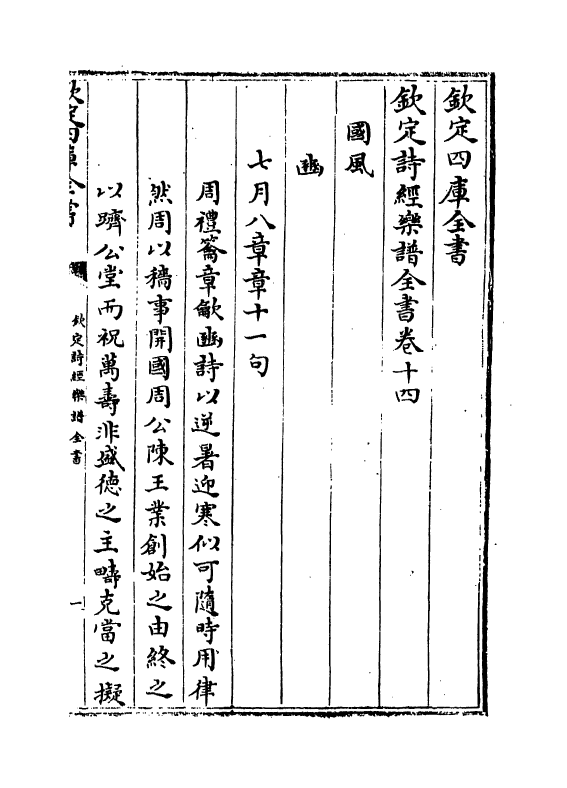 欽定四庫全書
欽定詩經樂譜全書卷十四
國風
豳
七月八章章十一句
周禮籥章龡豳詩以逆暑迎寒似可隨時用律
然周以穡事開國周公陳王業創始之由終之
以躋公堂而祝萬壽非盛德之主疇克當之擬
欽定四庫全書
欽定詩經樂譜全書
一